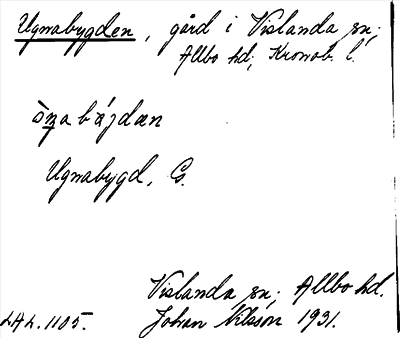 Ugnabygden, gård i Vislanda sn;
Allbo hd; Kronob. l.
Ugnabygd, G.
Vislanda sn; Allbo hd.
LAL. 1105. Johan Nilsson 1931.